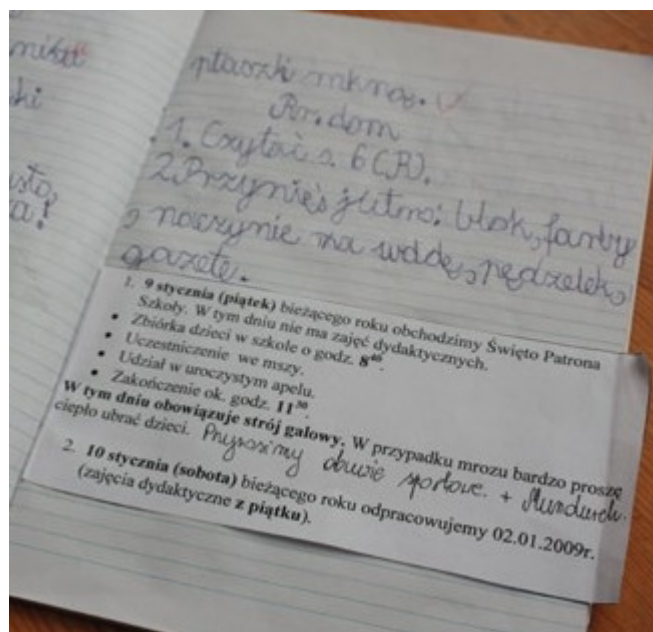 ptaszki mkną.
Pr. dom
1. Czytać s. 6 (R).
2. Przynieś jutro: blok, farby
, naczynie na wodę, pędzelek,
gazetę.
1. 9 stycznia (piątek) bieżącego roku obchodzimy Święto Patrona
Szkoły. W tym dniu nie ma zajęć dydaktycznych.
• Zbiórka dzieci w szkole o godz. 8⁴⁰.
• Uczestniczenie we mszy.
• Udział w uroczystym apelu.
• Zakończenie ok. godz. 11³⁰.
W tym dniu obowiązuje strój galowy. W przypadku mrozu bardzo proszę
ciepło ubrać dzieci. Przynosimy obuwie sportowe. + Mundurek.
2. 10 stycznia (sobota) bieżącego roku odpracowujemy 02.01.2009r.
(zajęcia dydaktyczne z piątku).